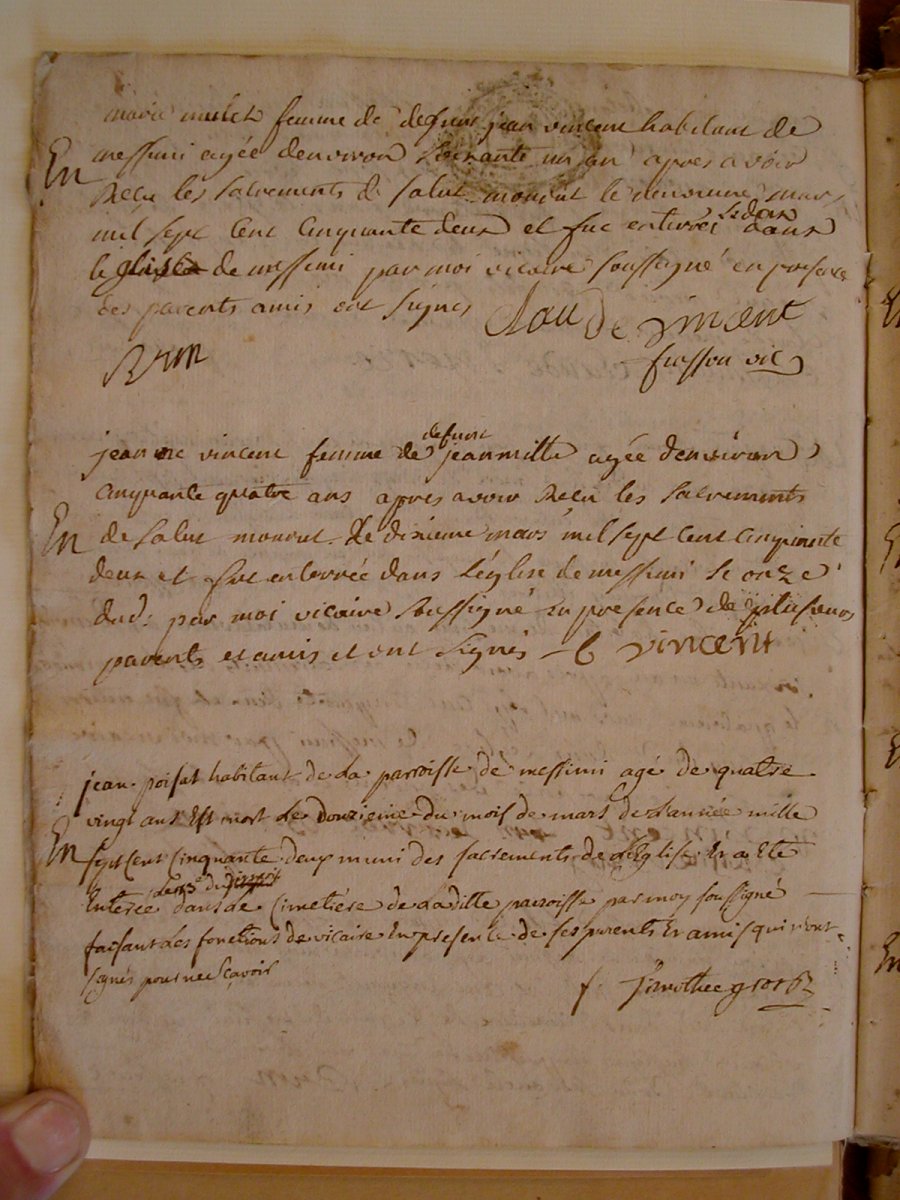 marie mulet femme de defunt jean vincent habitant de
En
messimi agée denviron soixante un an apres avoir
Recu les sacrements de salut mourut le mars
mil sept cent cinquante deux et fut enterrée dans
le deux
leglise de messimi par moi vicaire soussigné en presence
des parents amis ont signes Claude vincent
Brun
fusson vic
jeanne vincent femme de jean mille agée denviron
defunt
cinquante quatre ans apres avoir Recu les sacrements
En
de salut mourut Le dixieme mars mil sept cent cinquante
deux et fut enterrée dans léglise de messimi le onze
dud: par moi vicaire soussigné en presence de plusieurs
parents et amis et ont signés C vincent
jean poisat habitant de La parroisse de messimi agé de quatre
vingt ans Est mort Le Douzieme du mois de mars de Lannée mille
En
sept Cent Cinquante deux muni des sacrements de LEglise Er a Eté
Le 13e du
Enterée dans Le Cimetiére de Laditte parroisse par moy soussigné
faisant Les fonctions de vicaire En presence de ses parents Er amis qui n'ont
signés pour ne sçavoir
f. Timothee